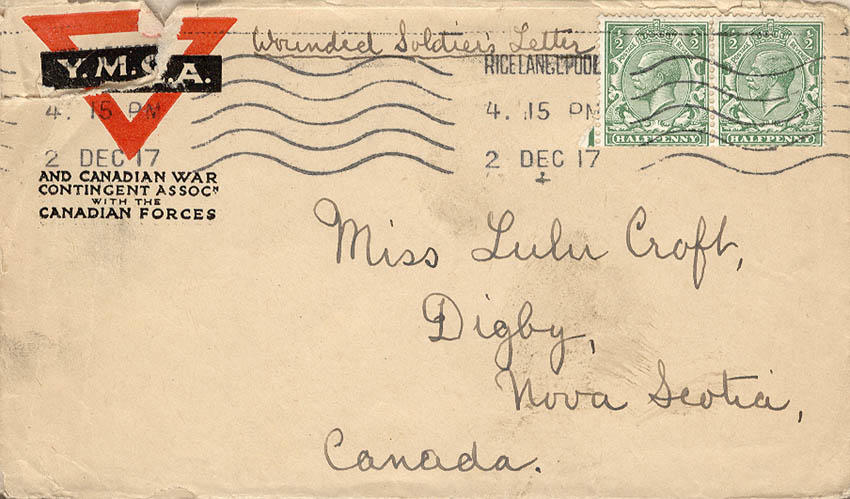 Wounded Soldier's Letter
Y.M.C.A.
RICE LANE L'POOL
4. 15 PM
2 DEC 17
4. 15 PM
2 DEC 17
1/2 1/2
HALFPENNY
1/2 1/2
HALFPENNY
AND CANADIAN WAR
CONTINGENT ASSOCN
WITH THE
CANADIAN FORCES
Miss Lulu Croft,
Digby,
Nova Scotia,
Canada.